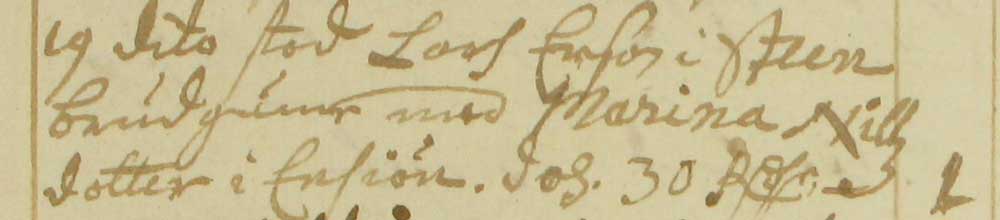 19 dito stod Lars Ersson i Steen
brudgumme med Marina Nills
dotter i Ersiön. dos. 30